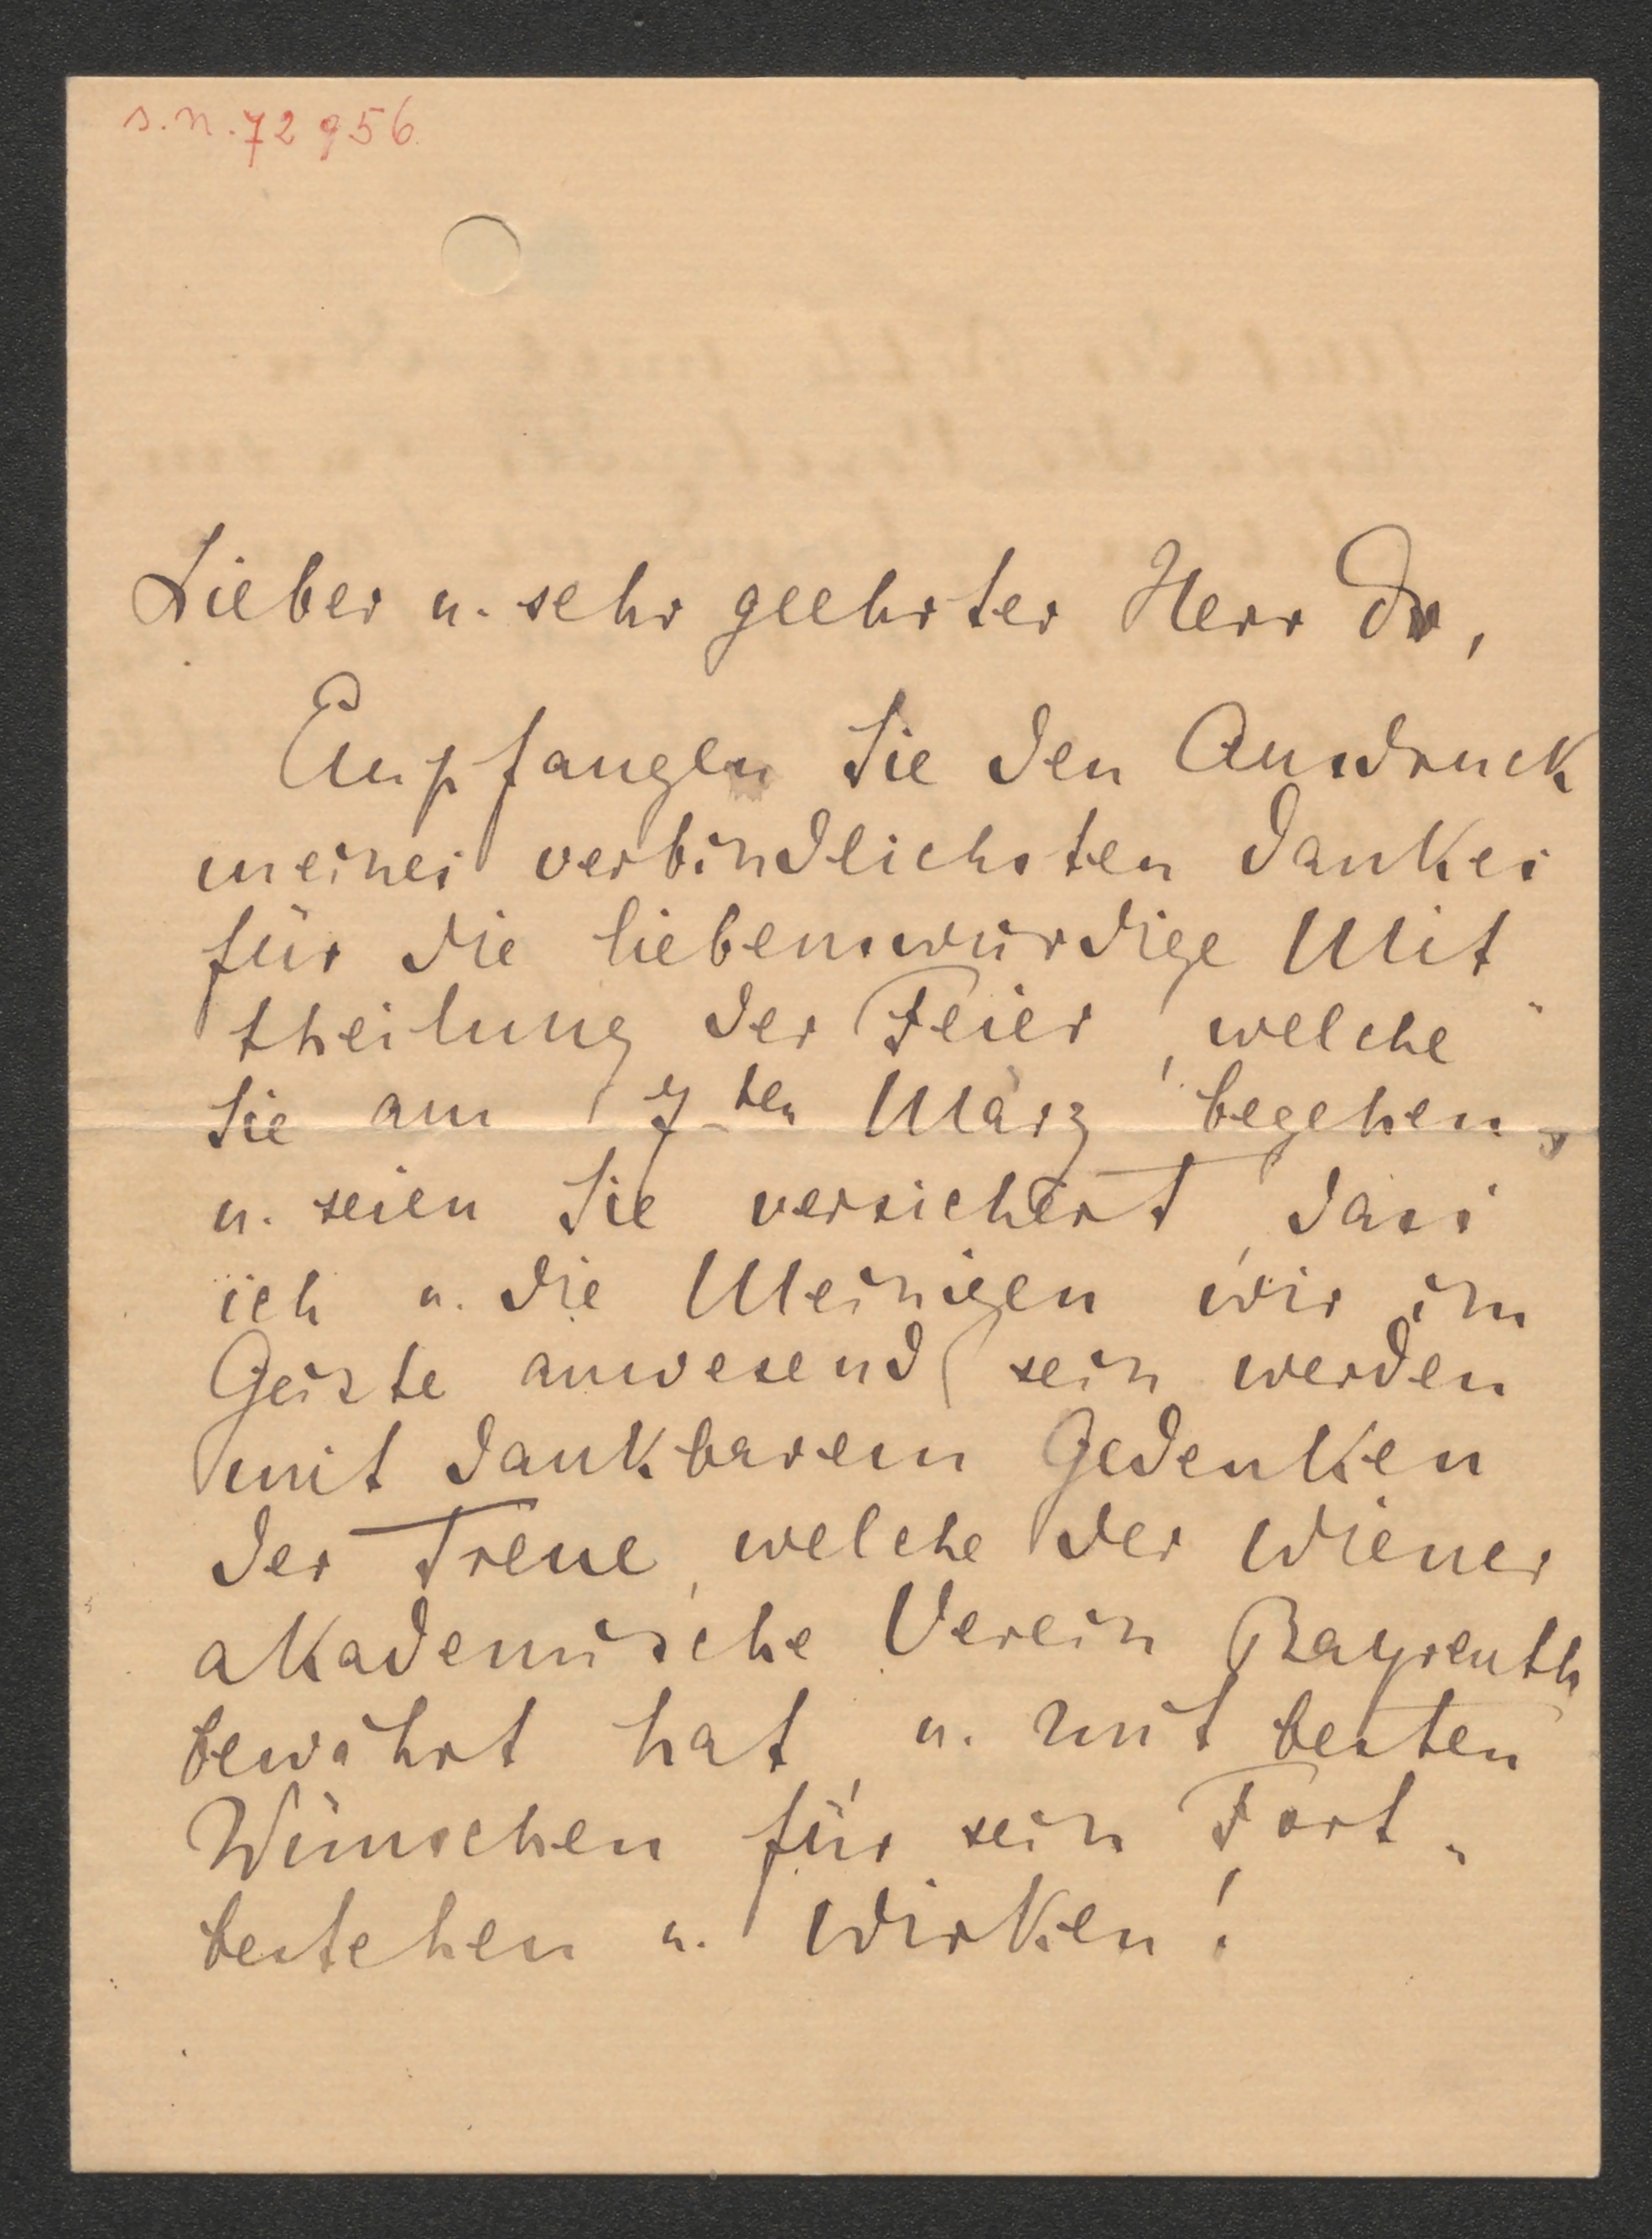 s.n. 72956
Lieber u. sehr geehrter Herr Dr,
Empfangen Sie den Ausdruck
meines verbindlichsten Dankes
für die liebenswürdige Mit
theilung der Feier, welche
Sie am 7ten März begehen,
u. seien Sie versichert, dass
ich u. die Meinigen wir im
Geiste anwesend sein werden
mit dankbarem Gedenken
der Treue, welche der Wiener
akademische Verein Bayreuth
bewährt hat, u. mit besten
Wünschen für sein Fort-
bestehen u. Wirken!